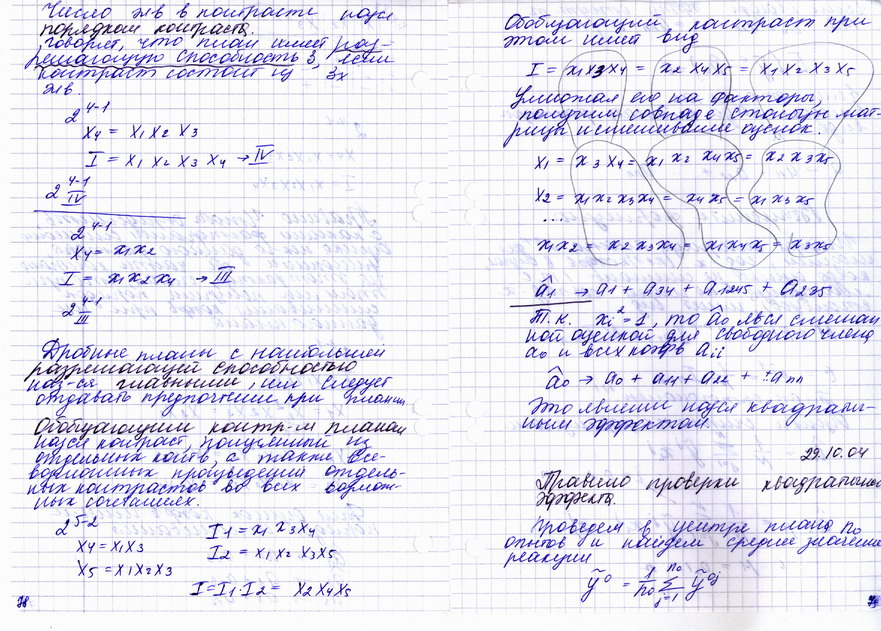 Число эл-в в контрасте наз-ся
порядком контраста.
Говорят, что план имеет раз-
решающую способность 3, если
контраст состоит из 3х
эл-в.
2^{4-1}
x₄ = x₁ x₂ x₃
I = x₁ x₂ x₃ x₄ → IV
2^{4-1}_{IV}
2^{4-1}
x₄ = x₁x₂
I = x₁x₂x₄ → III
2^{4-1}_{III}
Дробные планы с наибольшей
разрешающей способностью
наз-ся главными, им следует
отдавать предпочтение при
Обобщающим контр-м планам
наз-ся контраст, полученный из
отдельных а также все-
возможных произведений отдель-
ных контрастов во всех возмож-
ных сочетаниях.
2^{5-2}
x₄ = x₁x₃
x₅ = x₁x₂x₃
I₁ = x₁ x₃x₄
I₂ = x₁ x₂ x₃x₅
I = I₁·I₂ = x₂ x₄ x₅
78
Обобщающий контраст при
этом имеет вид
I = x₁x₃x₄ = x₂ x₄x₅ = x₁ x₂ x₃ x₅
Умножая его на факторы,
получим совпад. столбцы мат-
рицы и смешивание оценок.
x₁ = x₃x₄ = x₁ x₂ x₄x₅ = x₂ x₃x₅
x₂ = x₁x₂x₃x₄ = x₄x₅ = x₁x₃x₅
...
x₁x₂ = x₂x₃x₄ = x₁x₄x₅ = x₃x₅
â₁ → a₁ + a₃₄ + a₁₂₄₅ + a₂₃₅
Т.к. xᵢ² = 1, то â₀ явл-ся смешан
ной оценкой для свободного члена
a₀ и всех коэф-в aᵢᵢ
â₀ → a₀ + a₁₁ + a₂₂ + ... + aₙₙ
Это явление наз-ся квадратич-
ным эффектом.
29.10.04
Правило проверки квадратичного
эффекта.
Проведем в центре плана n₀
опытов и найдем среднее значение
реакции
ỹ⁰ = 1/n₀ Σ_{j=1}^{n₀} ỹ^{0j}
79